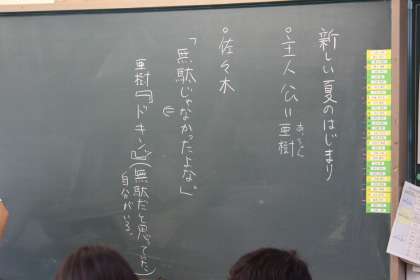 新しい夏のはじまり
●主人公＝亜樹
あき
●佐々木
「無駄じゃなかったよな。」
亜樹 ドキン
(無駄だと思っていた
自分がいる。)